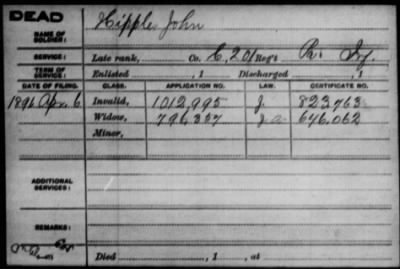 DEAD
NAME OF SOLDIER: Hipple, John
SERVICE: Late rank, Co. E, 201 Reg't Pa. Inf.
TERM OF SERVICE: Enlisted , 1 Discharged , 1
DATE OF FILING. CLASS. APPLICATION NO. LAW. CERTIFICATE NO.
1896 Apr. 6 Invalid, 1012,995 J. 823,763
Widow, 796,357 646,062
Minor,
ADDITIONAL SERVICES:
REMARKS:
Died , 1 , at